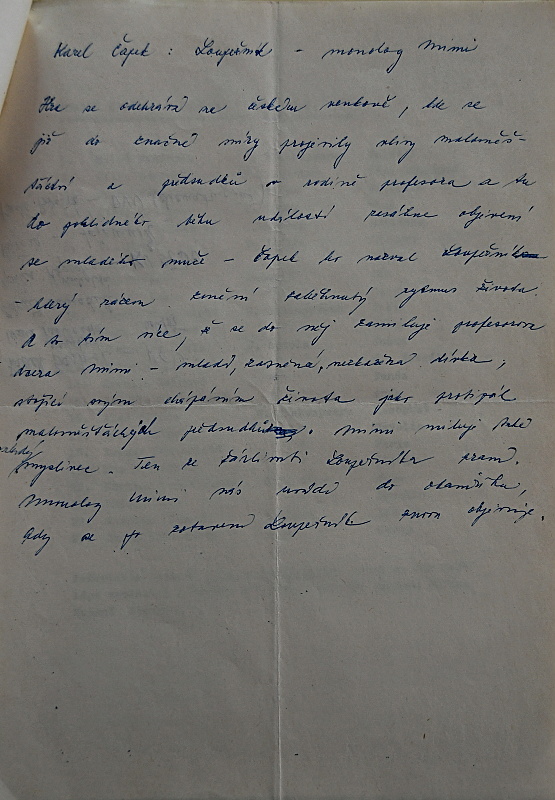 Karel Čapek : Loupežník - monolog Mimi
Hra se odehrává na českém venkově, kde se
již do značné míry projevily vlivy maloměš-
táctví a předsudků v rodině profesora a tu
do poklidného běhu událostí zasáhne objevení
se mladého muže - Čapek ho nazval Loupežník
- který začne měnit zaběhnutý rytmus života.
A to tím více, že se do něj zamiluje profesorova
dcera Mimi - mladá, zasněná, nezkažená dívka,
stojící svým chápáním života jako protipól
maloměšťáckých předsudků. Mimi miluje také
myslivec. Ten ze žárlivosti Loupežníka zraní.
Monolog Mimi nás uvádí do okamžiku,
kdy se po zotavení Loupežník znovu objevuje.